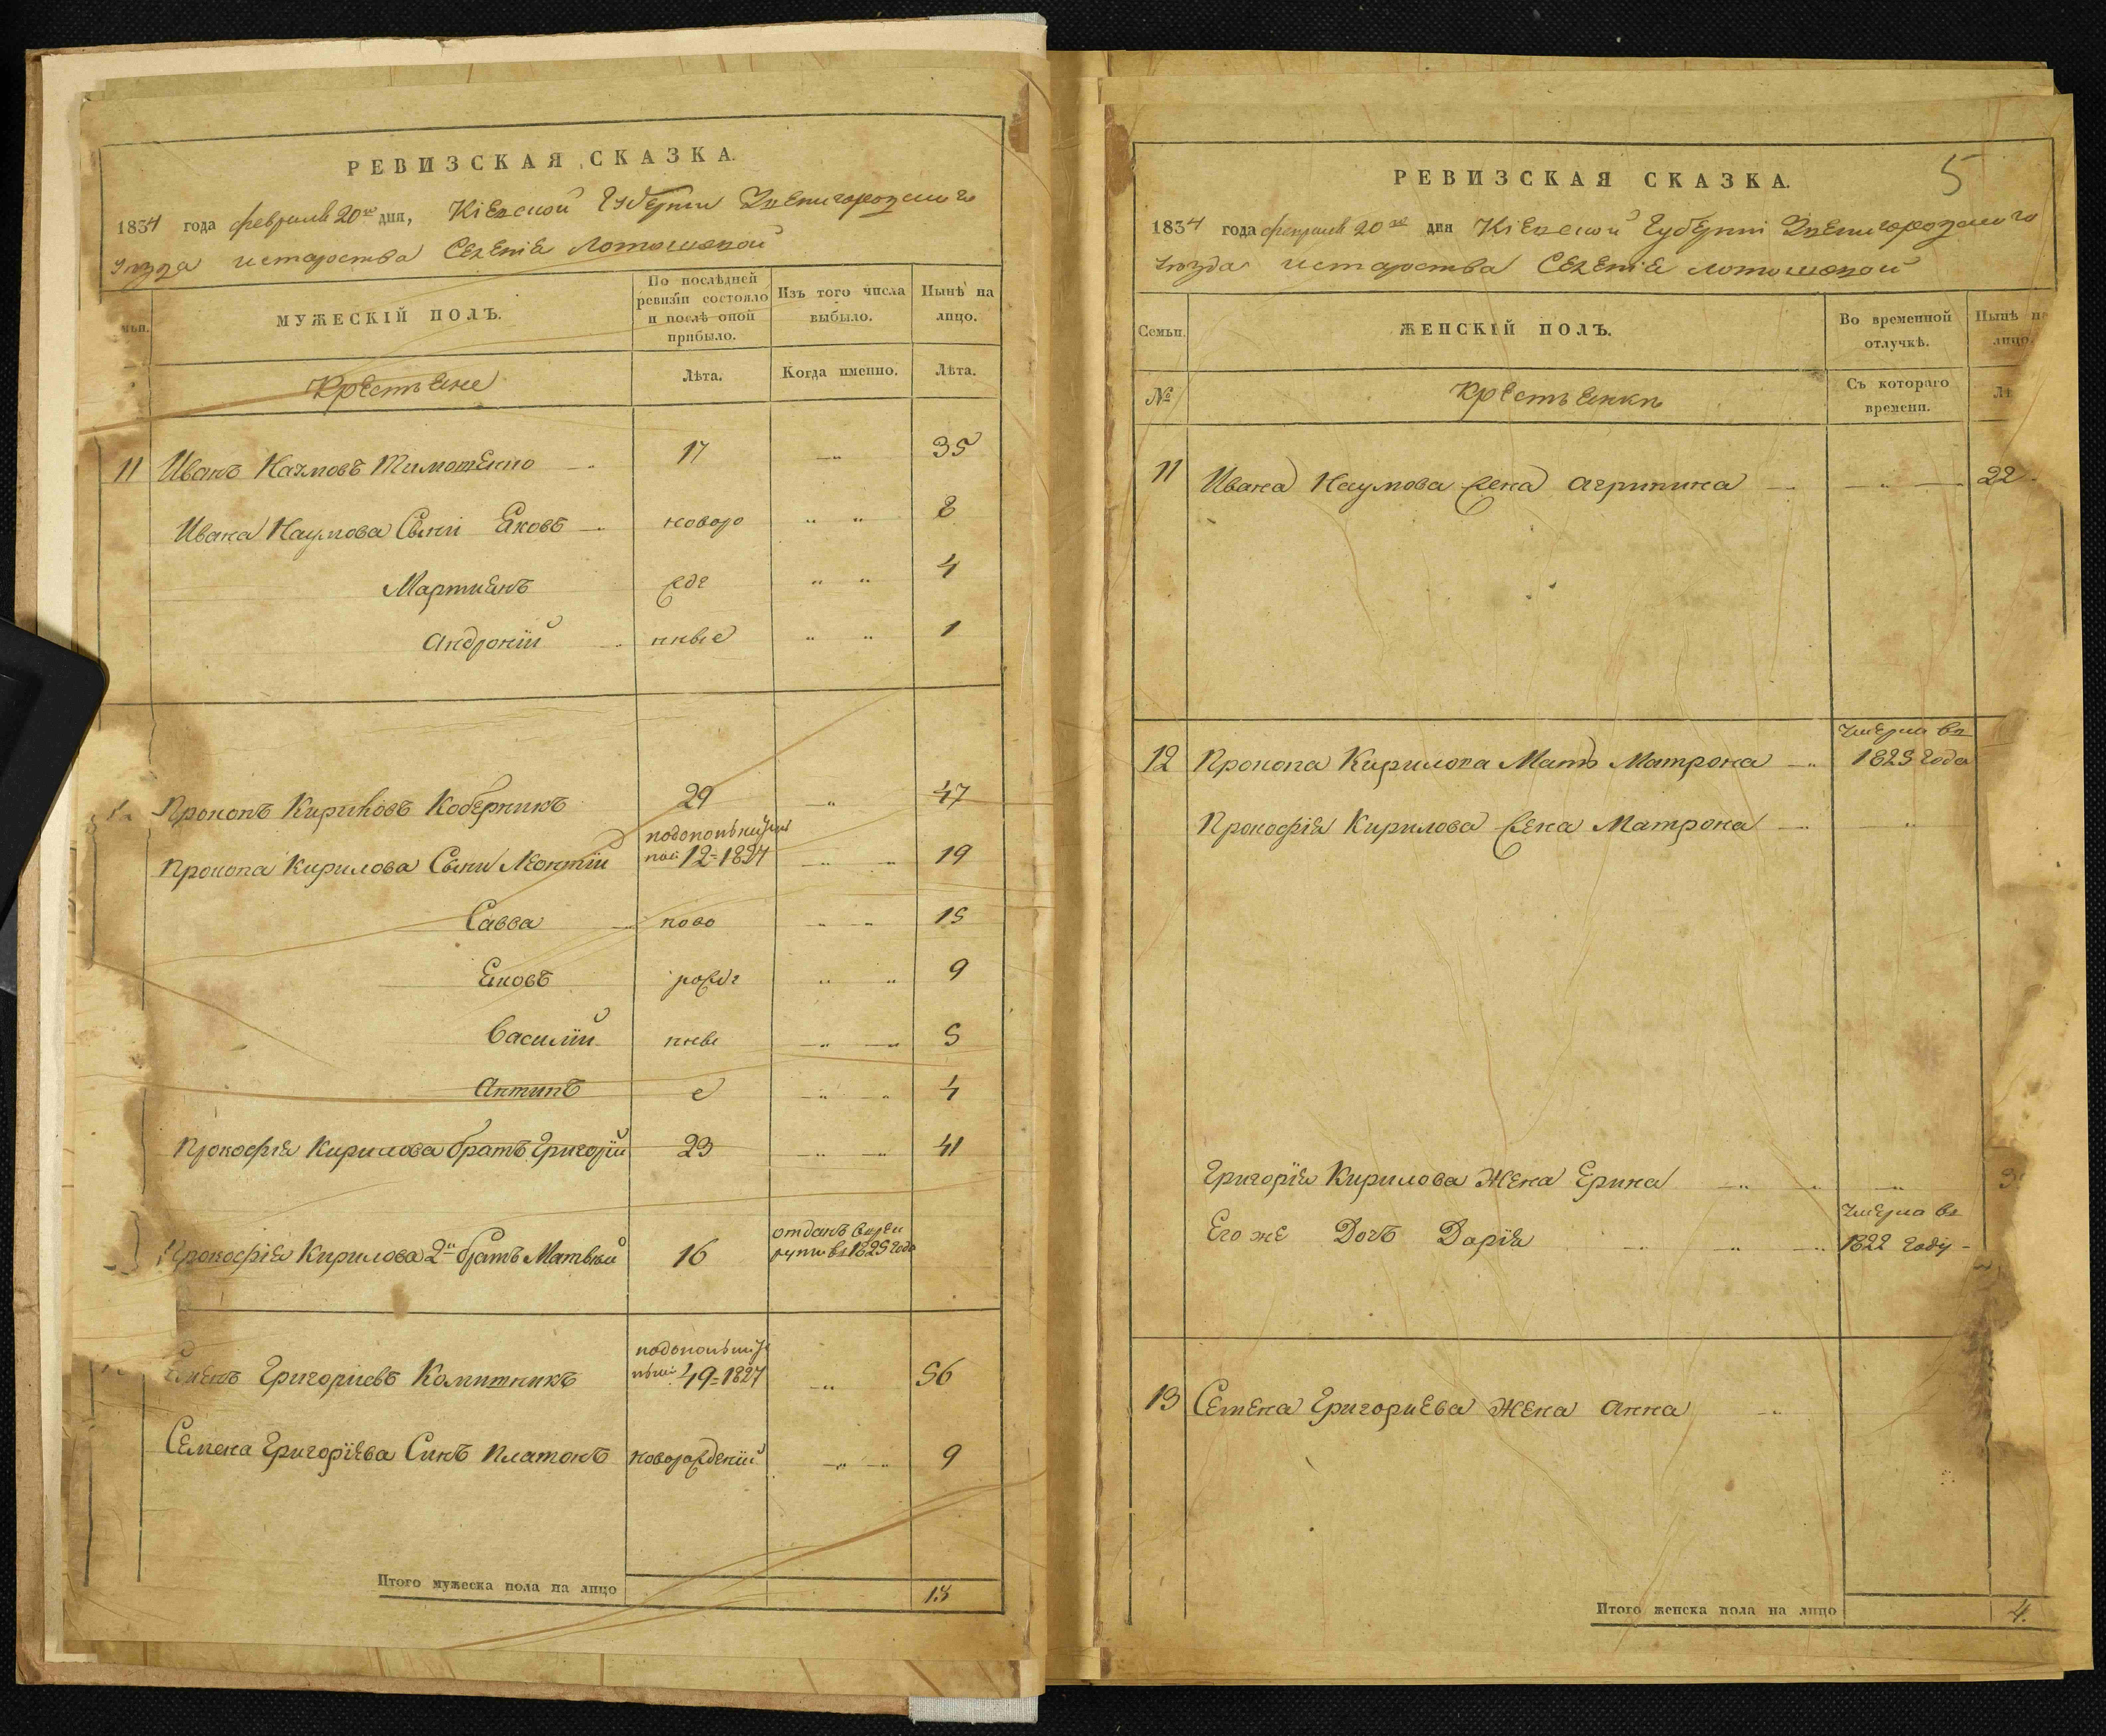 РЕВИЗСКАЯ СКАЗКА.
1834 года февраля 20го дня, Кіевской Губерніи Звенигородского
уезда истароства Селенія Лотошовой
МУЖЕСКІЙ ПОЛЪ.
По послѣдней ревизіи состояло и послѣ оной прибыло.
Изъ того числа выбыло.
Нынѣ на лицо.
Крестъяне
Лѣта.
Когда именно.
Лѣта.
11 Иванъ Наумовъ Тимошенко 17 35
Ивана Наумова Сыни Яковъ новоро 8
Мартиянъ жде 4
Андроній нные 1
Прокопъ Кириловъ Коберникъ 29 47
Прокопа Кирилова Сыни Леонтій 12-1827 19
Савва ново 15
Яковъ рожде 9
Василій нные 5
Антипъ 4
Прокофія Кирилова братъ Григорій 23 41
Прокофія Кирилова 2й братъ Матвей 16 отданъ врекруты в 1825 года
Григориевъ 49-1827 56
Семена Григоріева Синъ Платонъ новорожденій 9
Итого мужеска пола на лицо 13
5
РЕВИЗСКАЯ СКАЗКА.
1834 года февраля 20го дня Кіевской Губерніи Звенигородского
уезда истароства Селенія Лотошовой
Семьи.
ЖЕНСКІЙ ПОЛЪ.
Во временной отлучкѣ.
Нынѣ на лицо.
№
Крестъянки
Съ котораго времени.
11 Ивана Наумова жена Агрипина 22
12 Прокопа Кирилова Мать Матрона умерла въ 1825 года
Прокофія Кирилова жена Матрона
Григорія Кирилова Жена Ерина
Его же Дочъ Дарія умерла въ 1822 году
13 Семена Григориева Жена Анна
Итого женска пола на лицо 4.